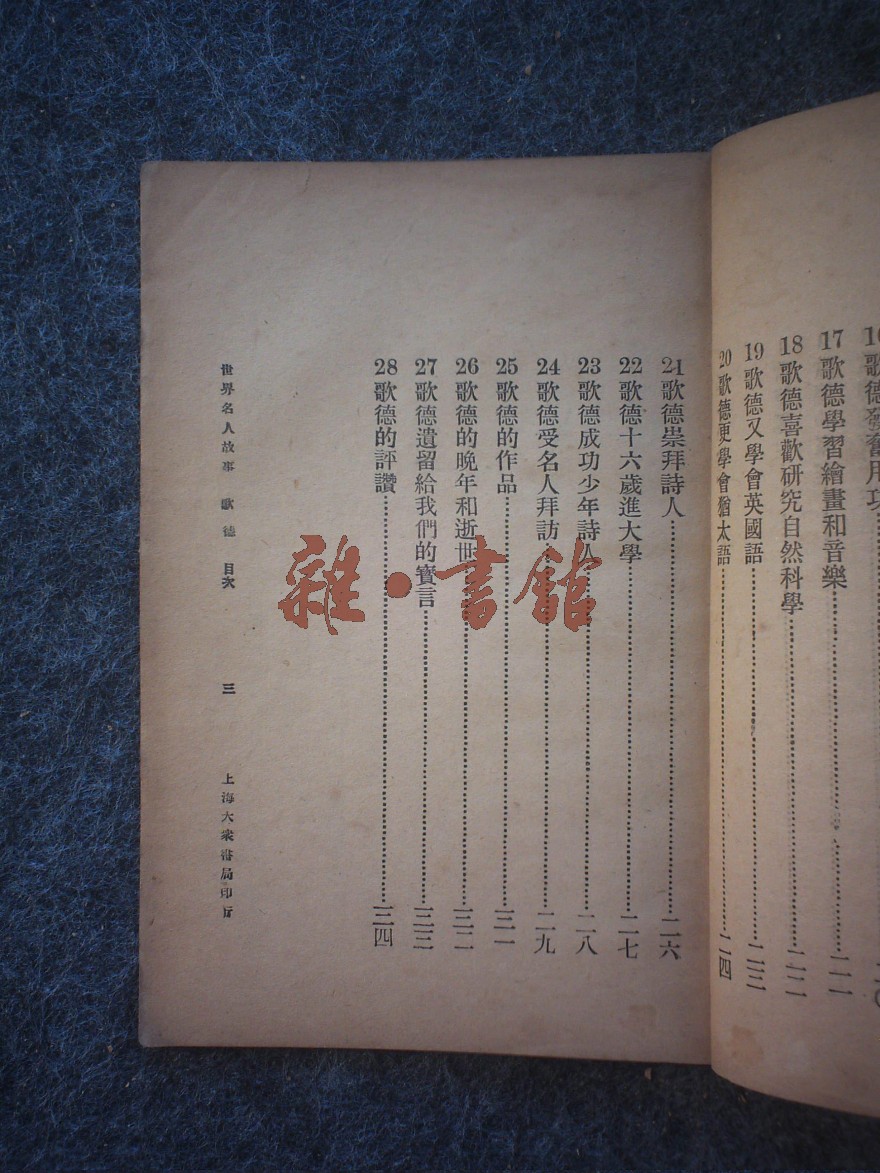 16歌德發奮用功…………二〇
17歌德學習繪畫和音樂…………二一
18歌德喜歡研究自然科學…………二二
19歌德又學會英國語…………二三
20歌德更學會猶太語…………二四
21歌德崇拜詩人…………二六
22歌德十六歲進大學…………二七
23歌德成功少年詩人…………二八
24歌德受名人拜訪…………二九
25歌德的作品…………三一
26歌德的晚年和逝世…………三二
27歌德遺留給我們的寶言…………三三
28歌德的評讚…………三四
世界名人故事 歌德 目次 三 上海大衆書局印行
雜·書館